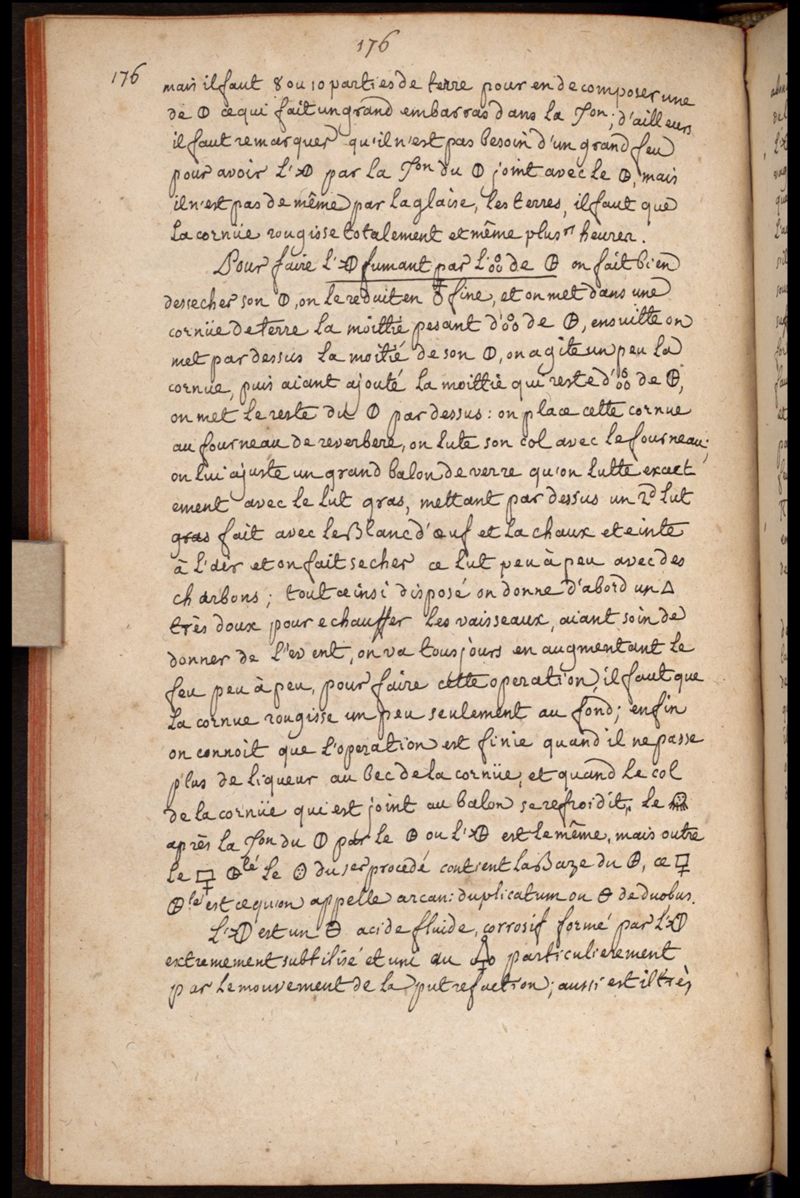 176
176 mais il faut 8 ou 10 parties de terre pour en decomposer une
de 🜕 ce qui fait un grand embarras dans la 🜍on; d'ailleurs
il faut remarquer qu'il n'est pas besoin d'un grand feu
pour avoir L' par la on du 🜕 joint avec le 🜖, mais
il n'est pas de même par la glaise, les terres, il faut que
La cornüe rougisse totalement et même plusrs heures.
Pour faire L' fumant par L'huile de 🜖 on fait bien
dessecher son 🜕, on le reduit en fine, et on met dans une
cornüe de terre La moittie pesant d' de 🜖, ensuitte on
met par dessus La moitié de son 🜕, on agite un peu la
cornue, puis aiant ajouté La moittie qui reste d' de 🜖,
on met Le reste du 🜕 par dessus: on place cette cornue
au fourneau de reverbere, on lute son col avec le fourneau;
on lui ajuste un grand balon de verre qu'on lutte exact
ement avec le Lut gras, mettant par dessus un 2d Lut
gras fait avec le Blanc d'œuf et la chaux eteinte
à L'air et on fait secher ce Lut peu à peu avec des
charbons; tout ainsi disposé on donne d'abord un 🜂
très doux pour echauffer les vaisseaux, aiant soin de
donner de L'event, on va tousjours en augmentant le
feu peu à peu, pour faire cette operation, il faut que
La cornue rougisse un peu seulement au fond; enfin
on connoit que L'operation est finie quand il ne passe
plus de liqueur au bec de la cornüe, et quand Le col
de la cornüe qui est joint au balon se refroidit, le
après la on du 🜕 par le 🜖 ou L' est le même, mais outre
le lé le du 1er procedé contient la Baze du 🜕, ce
le est ce qu'on appelle arcan: duplicatum ou 🜔 de duobus.
L' est un 🜔 acide fluide, corrosif formé par L'
extremement subtilisé et uni au particulierement
par le mouvement de la putrefaction; aussi est il très